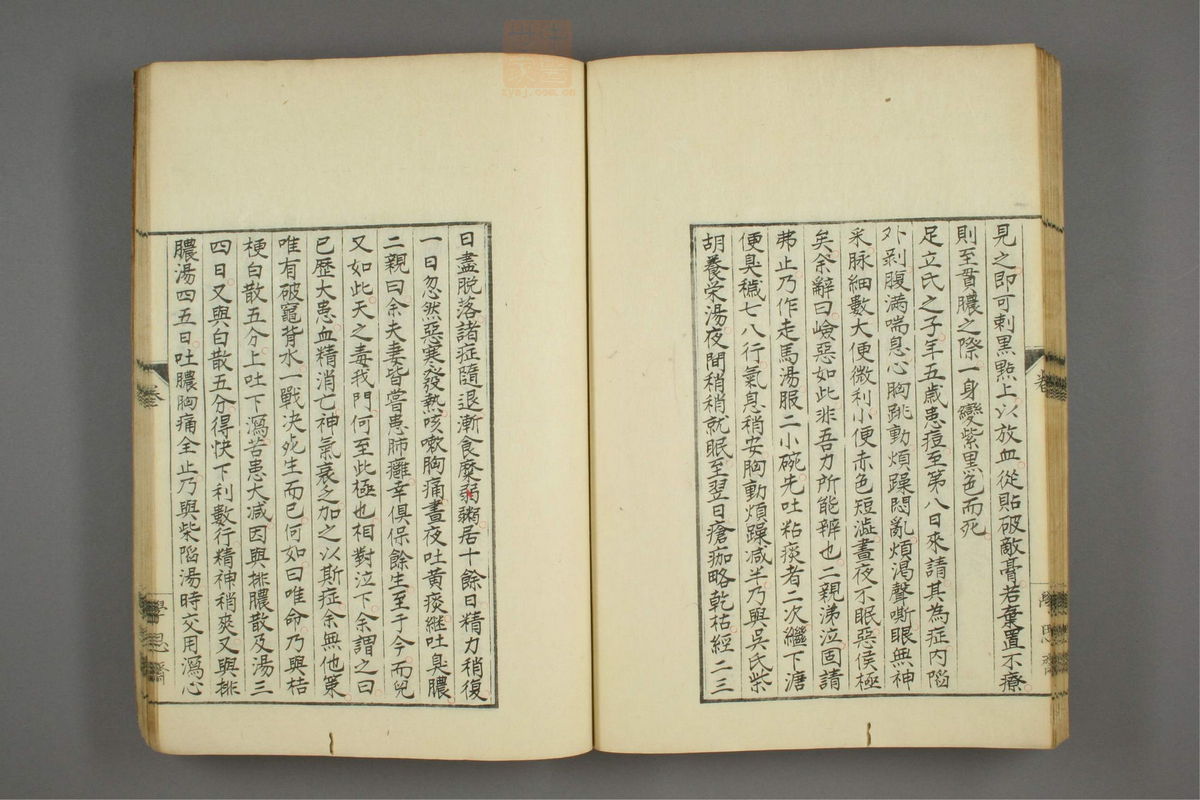 見之即可刺黒㸃上以放血從貼破敵膏若棄置不療
則至貫膿之際一身變紫黒色而死
足立氏之子年五歳患痘至第八日來請其為症内陥
外剥腹満喘息心胸跳動煩躁悶亂煩渇聲嘶眼無神
采脉細數大便微利小便赤色短澁晝夜不眠惡侯極
矣余辭曰嶮惡如此非吾力所能辨也二親涕泣固請
弗止乃作走馬湯服二小碗先吐粘痰者二次繼下溏
便臭穢七八行氣息稍安胸動煩躁減半乃與吳氏柴
胡養栄湯夜間稍稍就眠至翌日瘡痂略乾枯經二三
日盡脱落諸症隨退漸食糜粥居十餘日精力稍復
一日忽然惡寒發熱咳嗽胸痛晝夜吐黄痰継吐臭膿
二親曰余夫妻皆嘗患肺癰幸俱保餘生至于今而兒
又如此天之毒我門何至此極也相對泣下余謂之曰
已歴大患血精消亡神氣衰乏加之以斯症余無他策
唯有破竈背水一戰决死生而已何如曰唯命乃與桔
梗白散五分上吐下瀉苦患大減因與排膿散及湯三
四日又與白散五分得快下利數行精神稍爽又與排
膿湯四五日吐膿胸痛全止乃與柴陥湯時交用瀉心
卷
學思齋
zysj.com.cn